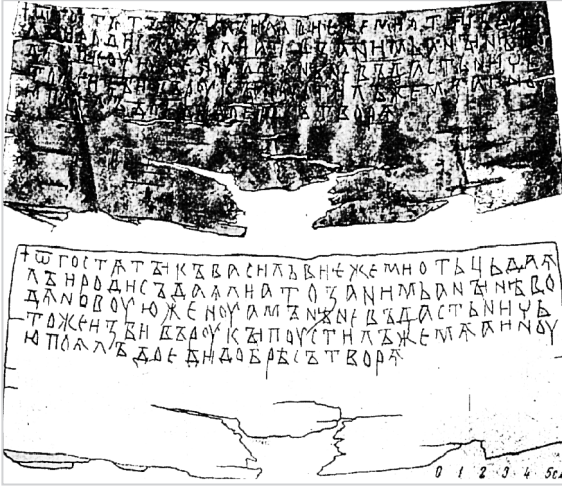 +ѾГОСТѦТЪІКЪВАСИЛЬВИЕЖЕМИОТЬЦЬДАѦ
ЛЪИРОДИСЪДАѦЛИАТОЗАНИМЬАНЪІНѢВО
ДѦНОВОУЮЖЕНОУАМЪНѢНЕВЪДАСТЬНИЧЬ
ТОЖЕИЗБИВЪРОУКЪІПОУСТИЛЪЖЕМѦАИНОУ
ЮПОѦЛЪДОЕДИДОБРѢСЪТВОРѦ
0 1 2 3 4 5см